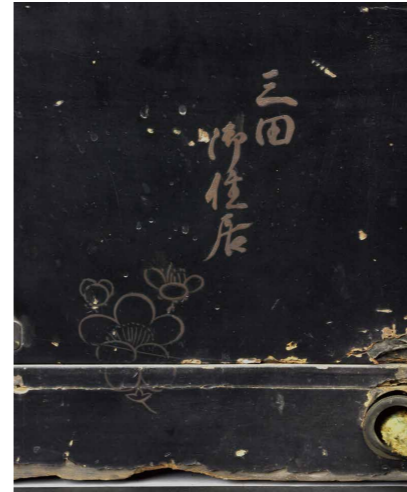 三田
御住居